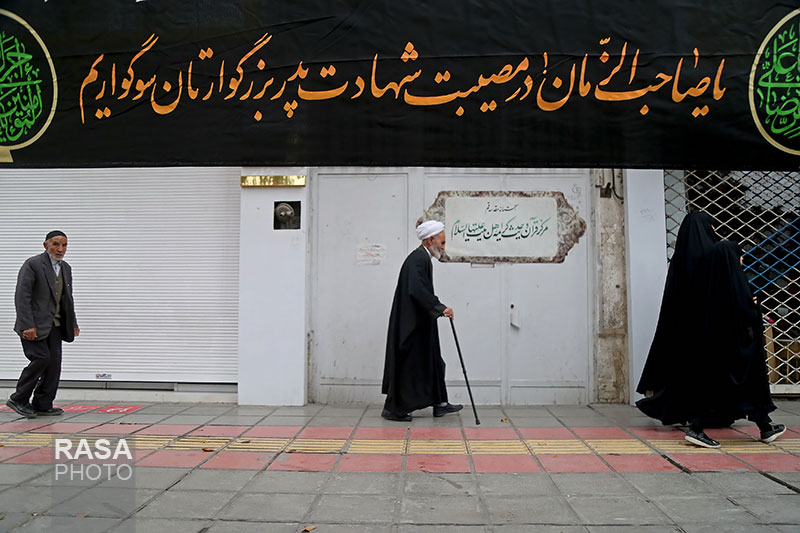 یا صاحب الزمان در مصیبت شهادت پدر بزرگوارتان سوگواریم
مرکز قرآن و حدیث کریمه اهل بیت علیها السلام
RASA
PHOTO